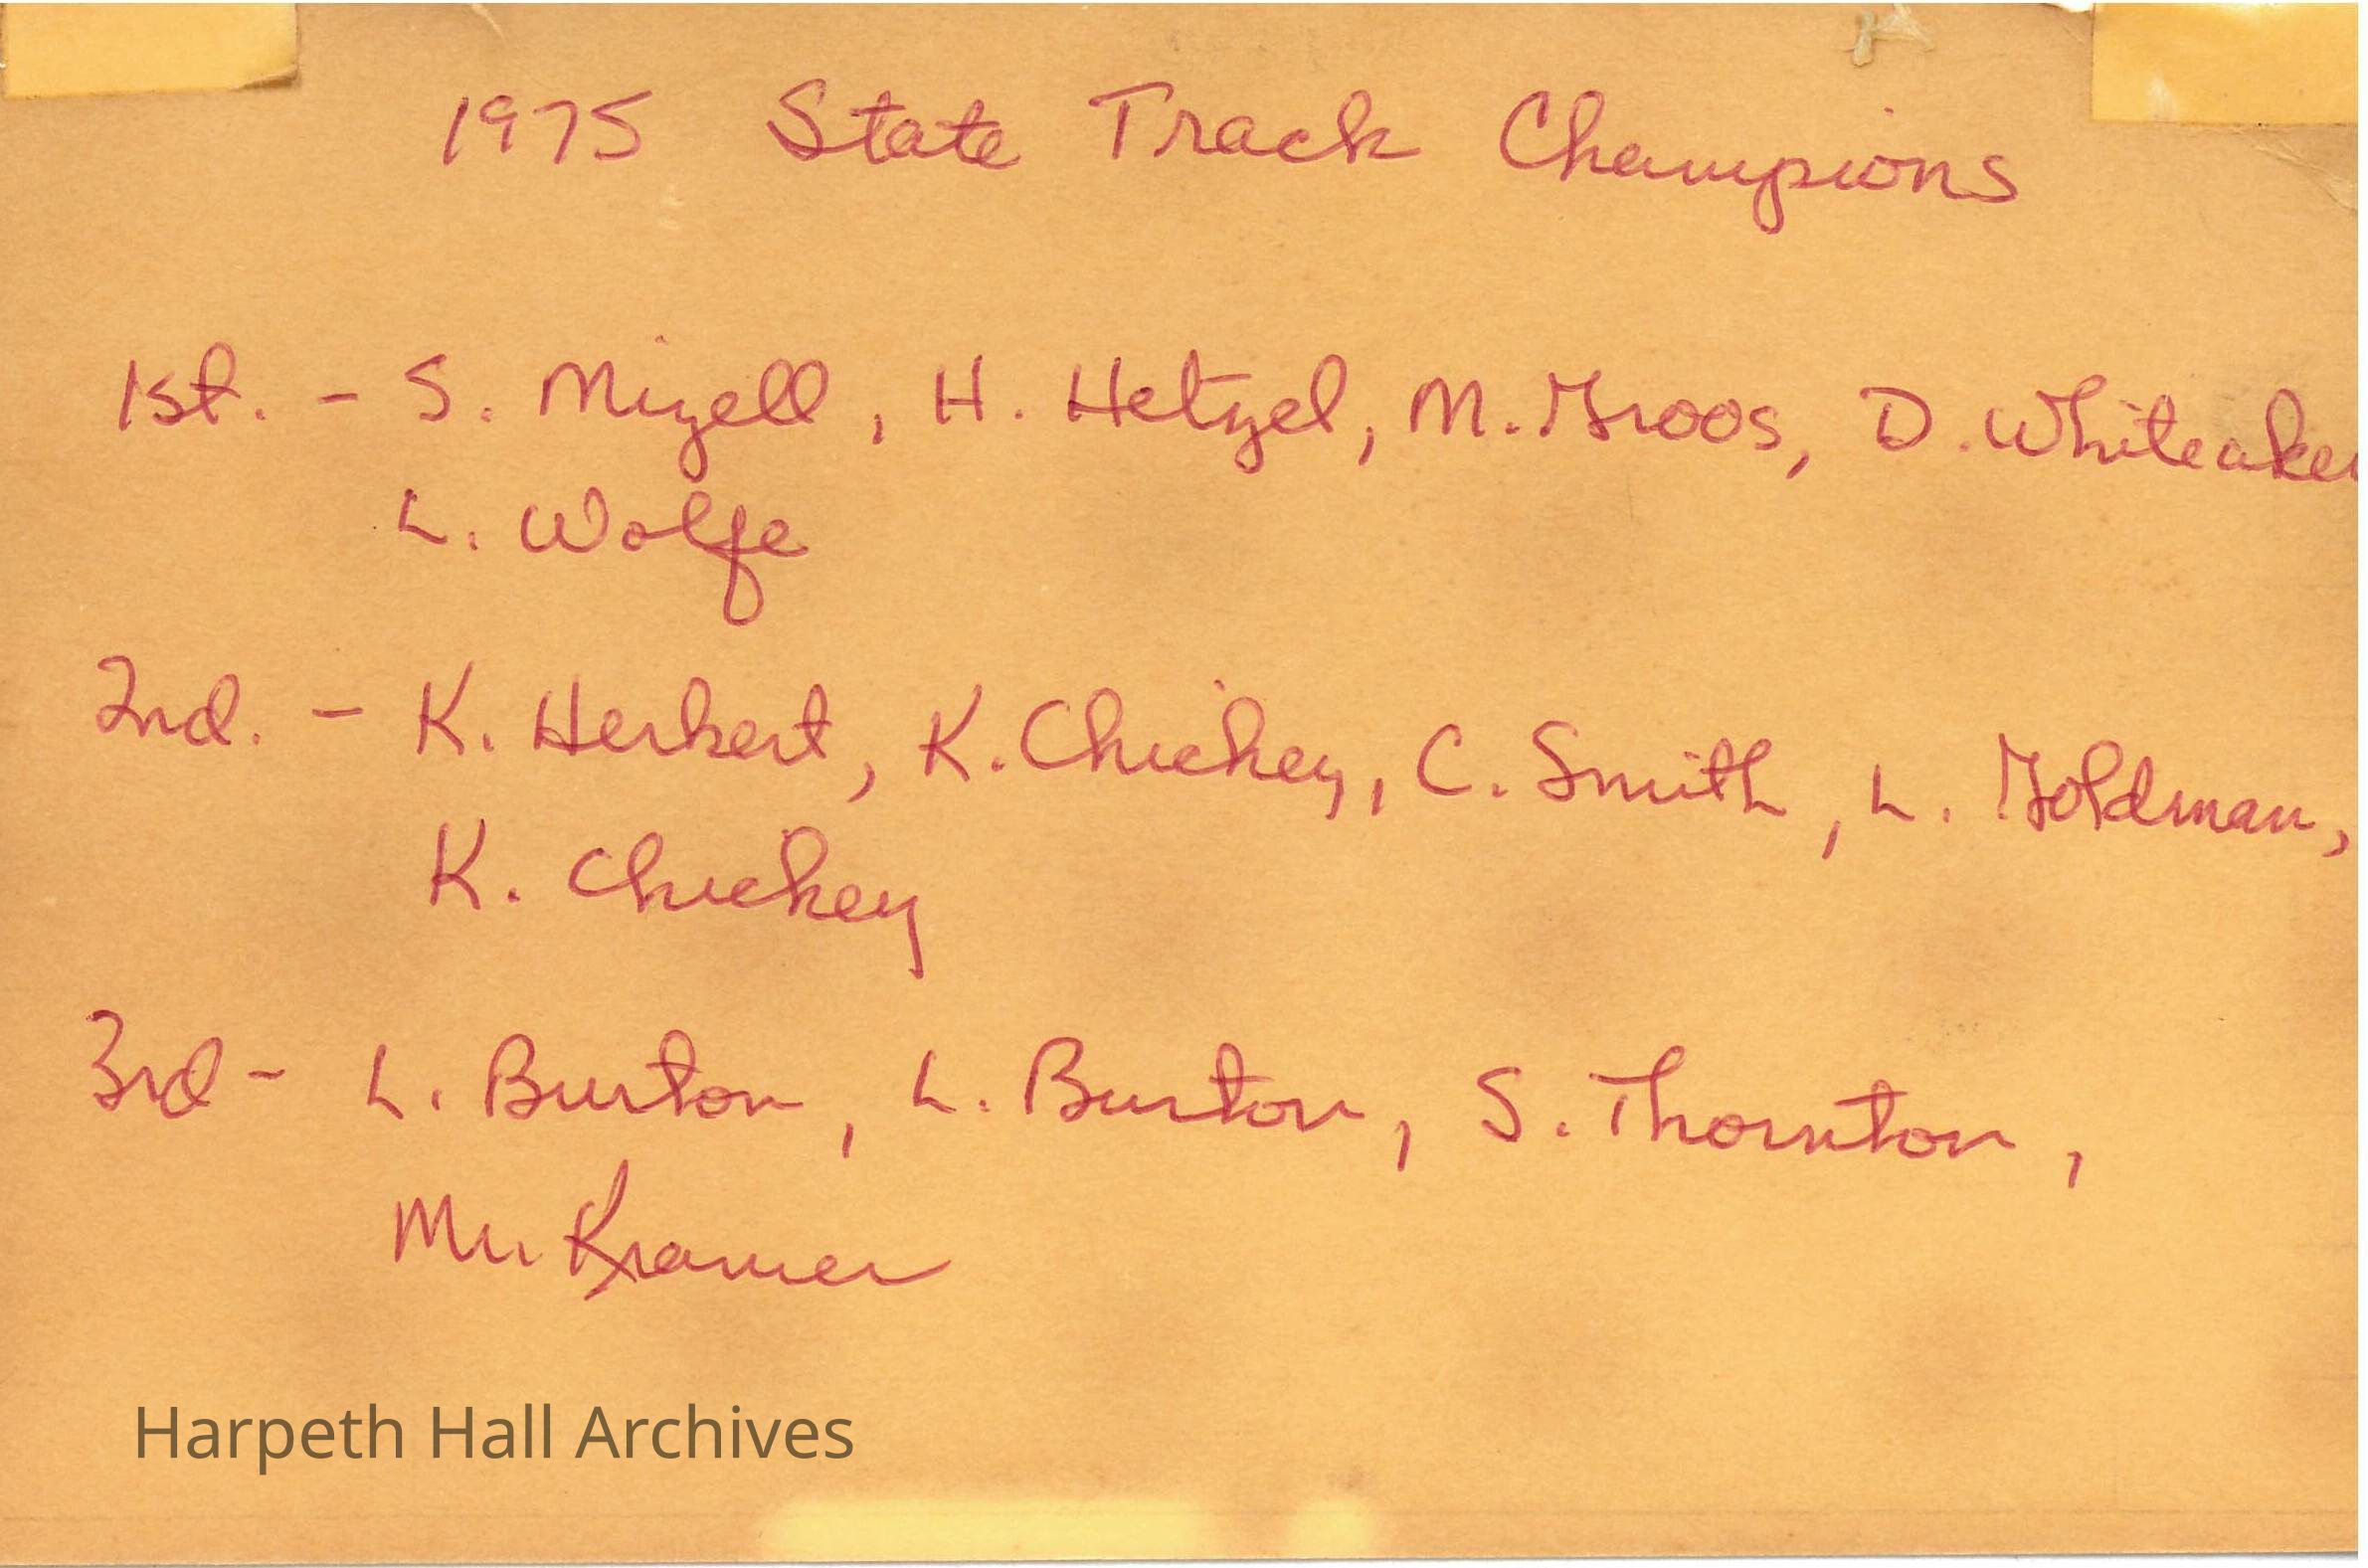 1975 State Track Champions
1st. - S. Mizell, H. Hetzel, M. Groos, D. Whiteaker
L. Wolfe
2nd. - K. Herbert, K. Chickey, C. Smith, L. Goldman,
K. Chickey
3rd - L. Burton, L. Burton, S. Thornton,
Mr. Kramer
Harpeth Hall Archives